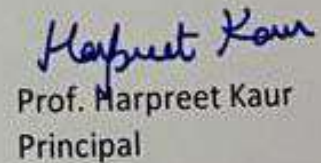 Harpreet Kaur
Prof. Harpreet Kaur
Principal